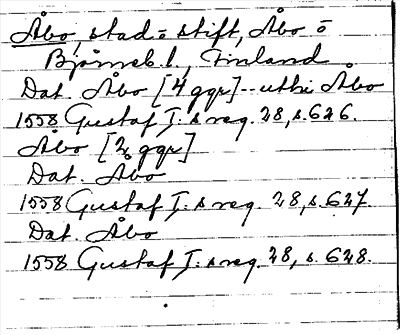 Åbo, stad = stift, Åbo =
Björneb. l., Finland
Dat. Åbo [4 ggr] -- uthi Åbo
1558 Gustaf I:s reg. 28, s. 626.
Åbo [2 ggr]
Dat. Åbo
1558 Gustaf I:s reg. 28, s. 627.
Dat. Åbo
1558 Gustaf I:s reg. 28, s. 628.